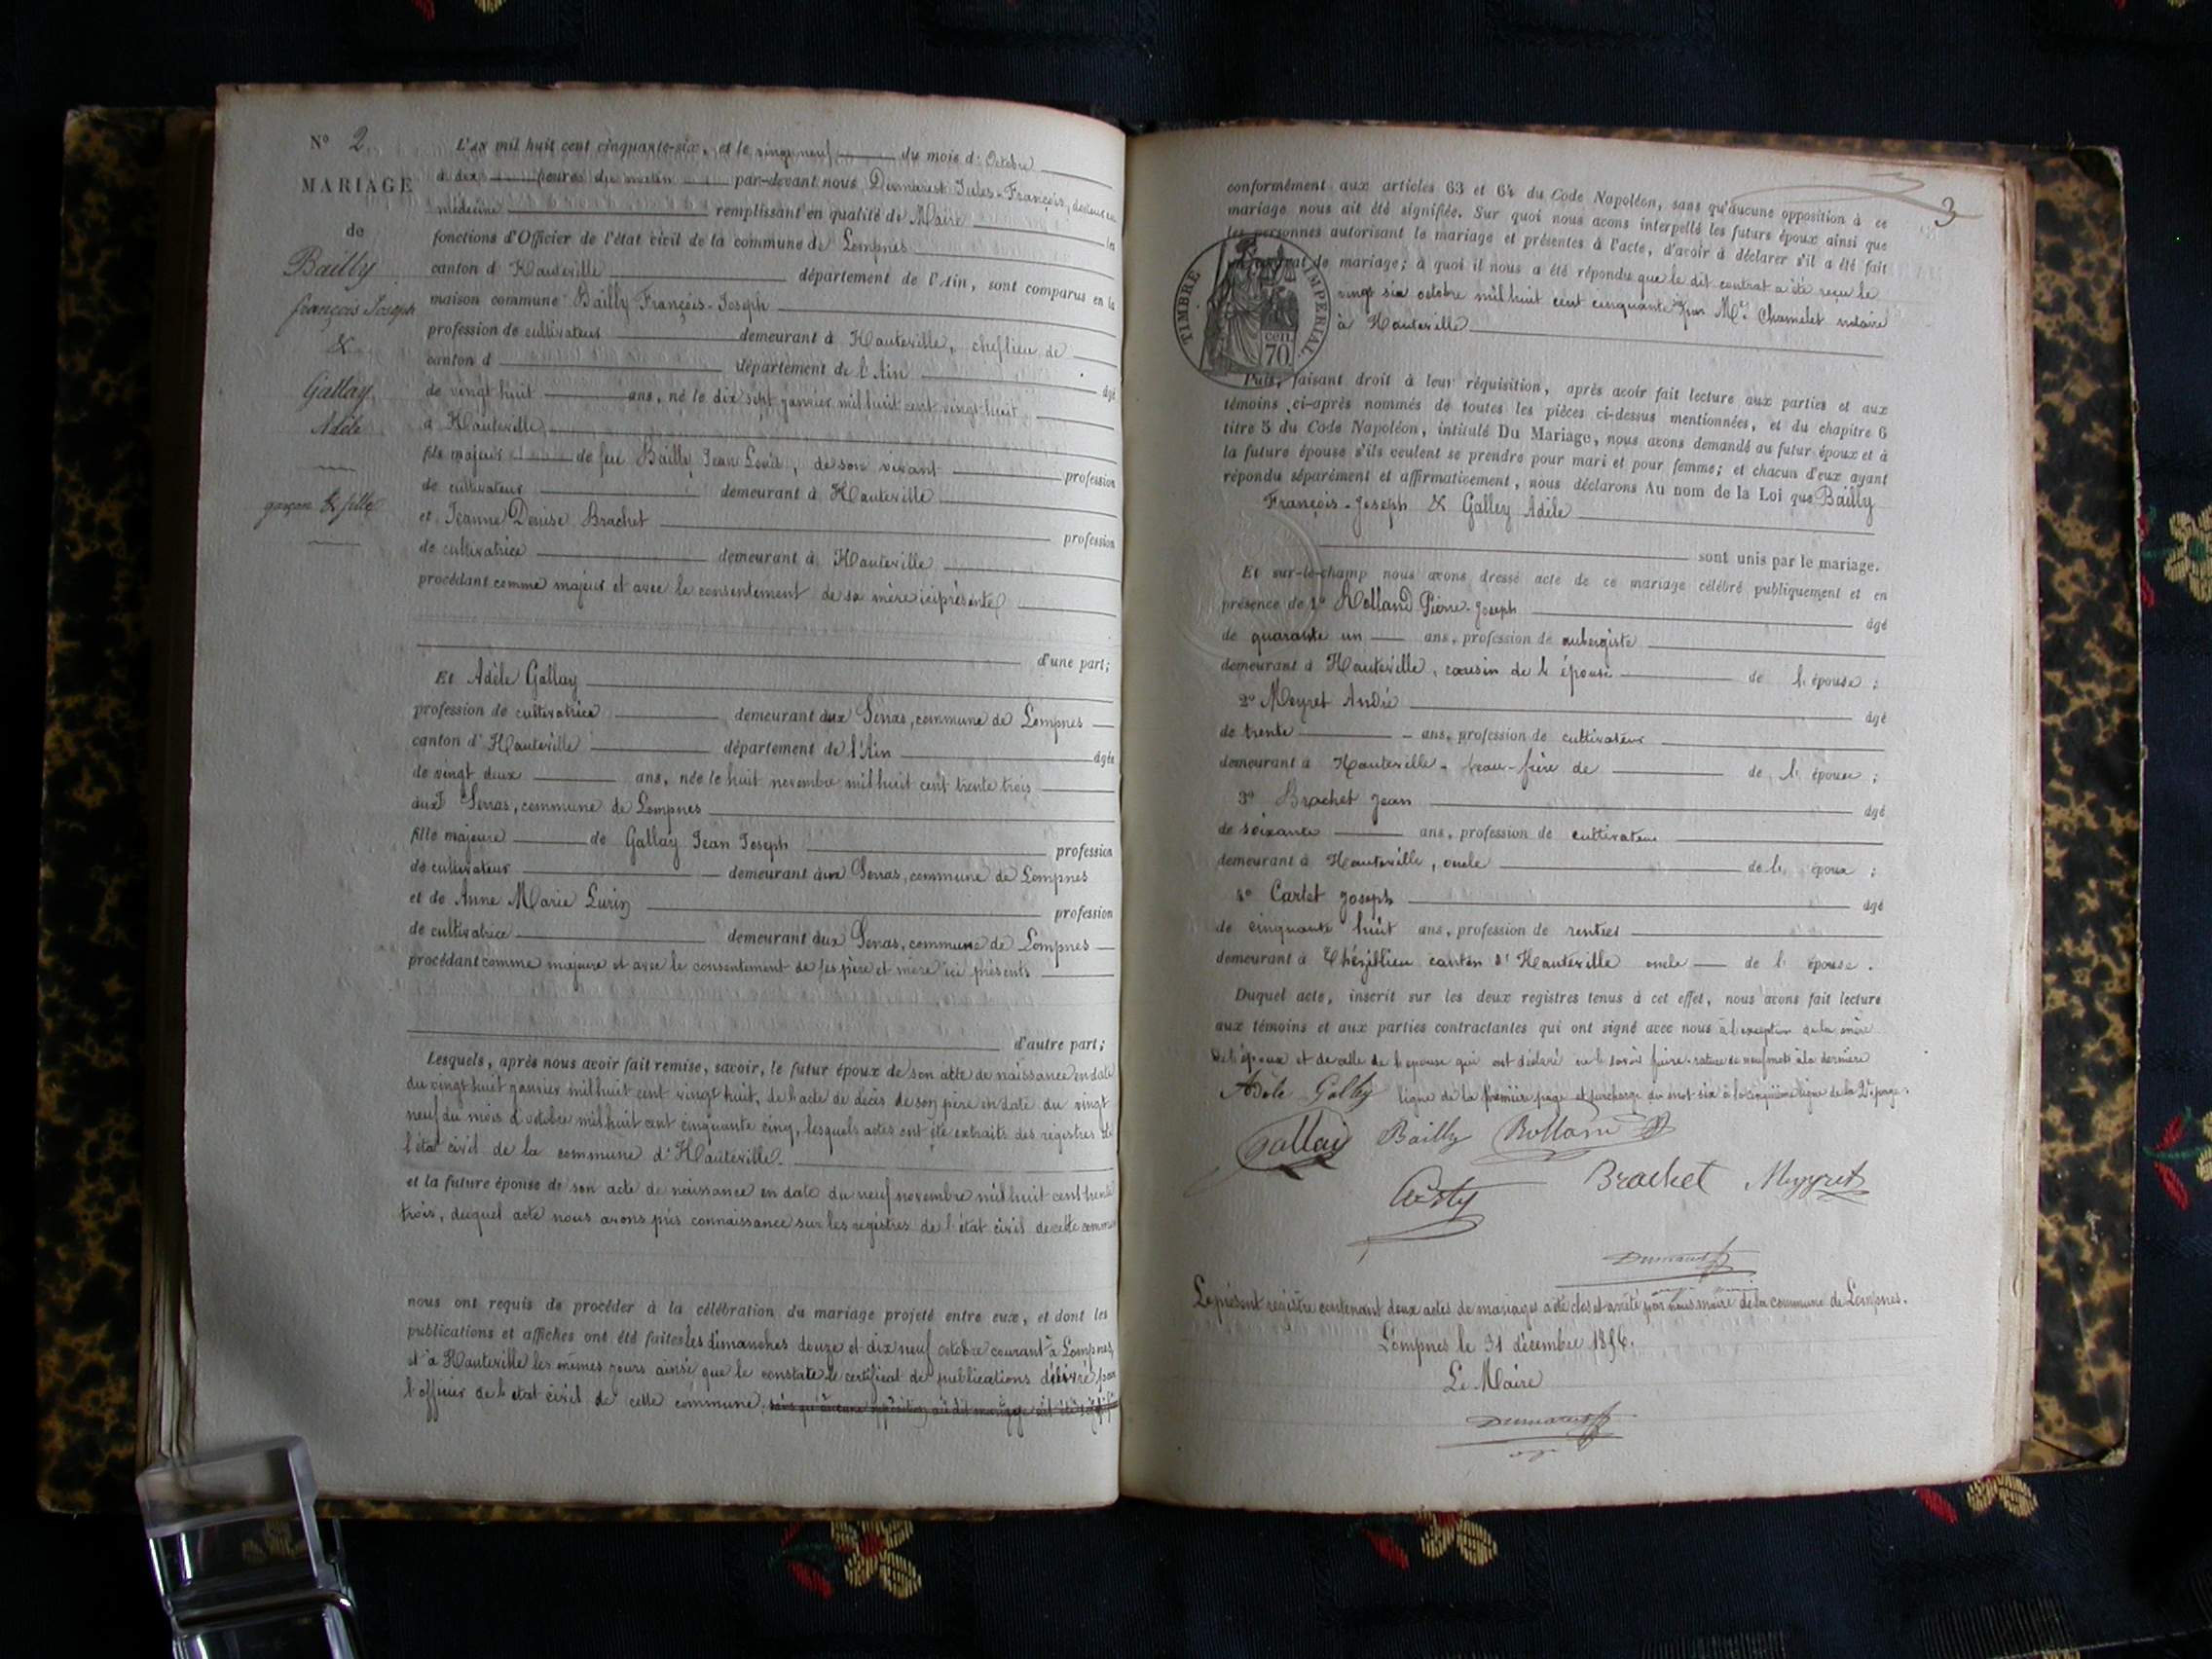 N° 2
MARIAGE
de
Bailly
françois Joseph
&
Gallay
Adèle
garçon & fille
L'an mil huit cent cinquante-six, et le vingt neuf du mois d' Octobre
à dix heures du matin par-devant nous, Jules-François, docteur en
médecine remplissant en qualité de Maire les
fonctions d'Officier de l'état civil de la commune de Lompnes
canton d' Hauteville département de l'Ain, sont comparus en la
maison commune Bailly François-Joseph
profession de cultivateur demeurant à Hauteville, cheflieu de
canton d département de l'Ain âgé
de vingt huit ans, né le dix sept janvier mil huit cent vingt huit
à Hauteville
fils majeur de feu Bailly Jean Louis, de son vivant profession
de cultivateur demeurant à Hauteville
et Jeanne Denise Brachet profession
de cultivatrice demeurant à Hauteville
procédant comme majeur et avec le consentement de sa mère ici présente
d'une part;
Et Adèle Gallay
profession de cultivatrice demeurant aux Serras, commune de Lompnes
canton d' Hauteville département de l'Ain âgée
de vingt deux ans, née le huit novembre mil huit cent trente trois
aux Serras, commune de Lompnes
fille majeure de Gallay Jean Joseph profession
de cultivateur demeurant aux Serras, commune de Lompnes
et de Anne Marie Lurin profession
de cultivatrice demeurant aux Serras, commune de Lompnes
procédant comme majeure et avec le consentement de ses père et mère ici présents
d'autre part;
Lesquels, après nous avoir fait remise, savoir, le futur époux de son acte de naissance en date
du vingt huit janvier mil huit cent vingt huit, de l'acte de décès de son père en date du vingt
neuf du mois d'octobre mil huit cent cinquante cinq, lesquels actes ont été extraits des registres de
l'état civil de la commune d'Hauteville.
et la future épouse de son acte de naissance en date du neuf novembre mil huit cent trente
trois, duquel acte nous avons pris connaissance sur les registres de l'état civil de cette commune
nous ont requis de procéder à la célébration du mariage projeté entre eux, et dont les
publications et affiches ont été faites les dimanches douze et dix neuf octobre courant à Lompnes,
et à Hauteville les mêmes jours ainsi que le constate le certificat de publications délivré par
l'officier de l'état civil de cette commune, sans qu'aucune opposition au dit mariage ait été
3
conformément aux articles 63 et 64 du Code Napoléon, sans qu'aucune opposition à ce
mariage nous ait été signifiée. Sur quoi nous avons interpellé les futurs époux ainsi que
les personnes autorisant le mariage et présentes à l'acte, d'avoir à déclarer s'il a été fait
un contrat de mariage; à quoi il nous a été répondu que le dit contrat a été reçu le
vingt six octobre mil huit cent cinquante six par Me. Chamelet notaire
à Hauteville
TIMBRE IMPERIAL
cen. 70
Puis, faisant droit à leur réquisition, après avoir fait lecture aux parties et aux
témoins ci-après nommés de toutes les pièces ci-dessus mentionnées, et du chapitre 6
titre 5 du Code Napoléon, intitulé Du Mariage, nous avons demandé au futur époux et à
la future épouse s'ils veulent se prendre pour mari et pour femme; et chacun d'eux ayant
répondu séparément et affirmativement, nous déclarons Au nom de la Loi que Bailly
François-Joseph & Galley Adèle
sont unis par le mariage.
Et sur-le-champ nous avons dressé acte de ce mariage célébré publiquement et en
présence de 1° Rolland Pierre-Joseph âgé
de quarante un ans, profession de aubergiste
demeurant à Hauteville, cousin de l'épouse de l'épouse;
2° Meyret André âgé
de trente ans, profession de cultivateur
demeurant à Hauteville - beau-frère de de l'époux;
3° Brachet Jean âgé
de soixante ans, profession de cultivateur
demeurant à Hauteville, oncle de l' époux;
4° Cartet Joseph âgé
de cinquante huit ans, profession de rentier
demeurant à Thézillieu canton d'Hauteville oncle de l' épouse.
Duquel acte, inscrit sur les deux registres tenus à cet effet, nous avons fait lecture
aux témoins et aux parties contractantes qui ont signé avec nous à l'exception de la mère
de l'époux et de celle de l'épouse qui ont déclaré ne le savoir faire. rature de neuf mots à la dernière
Adèle Galley ligne de la première page et surcharge du mot six à la cinquième ligne de la 2e page.
Gallay Bailly Rolland
Brachet Meyret
Le présent registre contenant deux actes de mariages a été clos et arrêté par nous maire de la commune de Lompnes.
Lompnes le 31 décembre 1856.
Le Maire